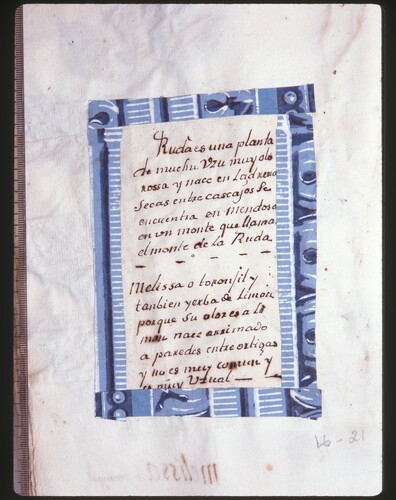 Ruda es una planta
de mucho Vzu muy olo
rossa y nace en ladrera
secas entre cascajos se
encuentra en Mendoso
en vn monte que llama
el monte de la Ruda
Melissa o toronjil y
tanbien yerba de Limon
porque su olor es a Li
mon nace arrimado
a paredes entre ortigas
y no es muy comun y
es muy Vzual
16-21
melissa